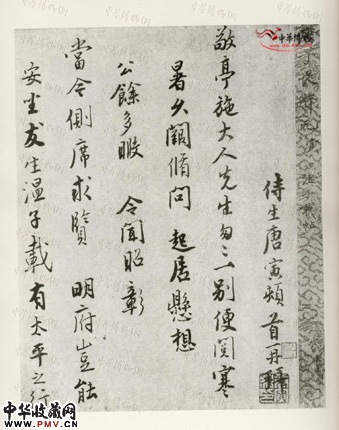 侍生唐寅頓首再拜
敬亭施大人先生匆匆一別便閱寒
暑久闊脩問 起居懸想
公餘多暇 令聞昭彰
當今側席求賢 明府豈能
安坐友生溫子載有太平之行
中华博物
中华收藏网
WWW.PMV.CN